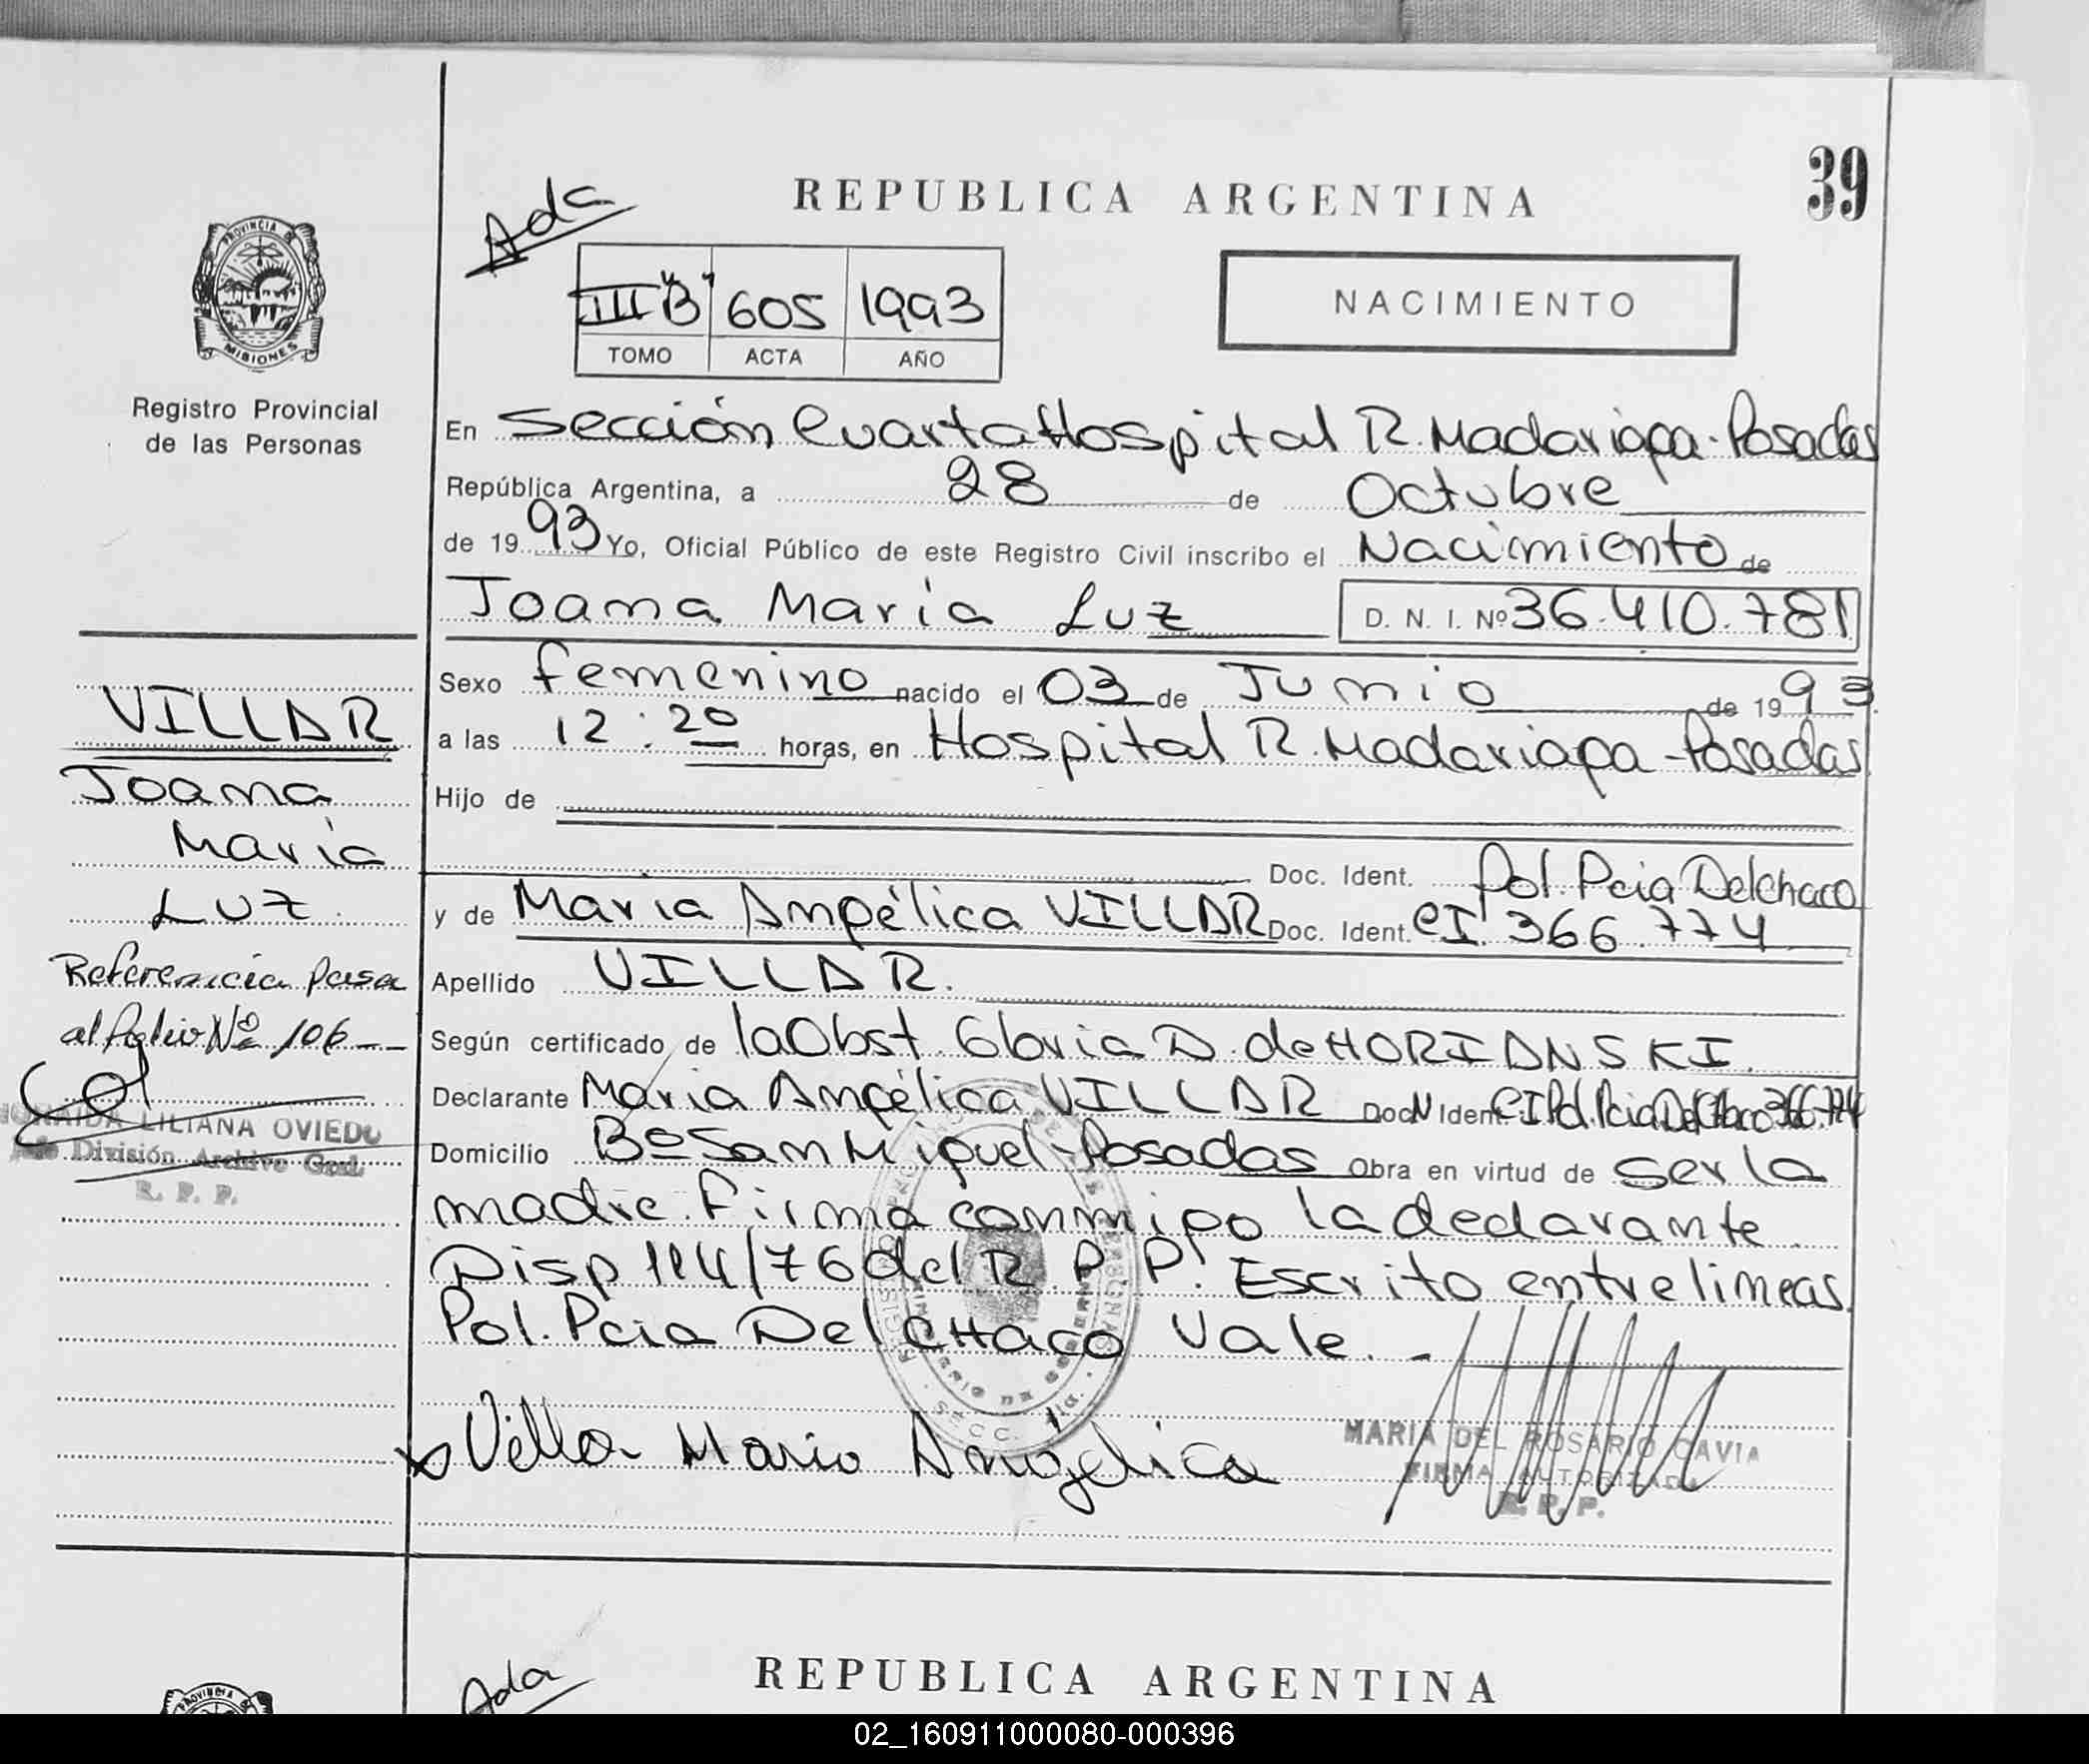 39
REPUBLICA ARGENTINA
Ada
PROVINCIA DE
MISIONES
Registro Provincial
de las Personas
III "B" 605 1993
TOMO ACTA AÑO
NACIMIENTO
En Sección Cuarta Hospital R. Madariaga - Posadas
República Argentina, a 28 de Octubre
de 1993 Yo, Oficial Público de este Registro Civil inscribo el Nacimiento de
Joana Maria Luz D. N. I. Nº 36.410.781
Sexo femenino nacido el 03 de Junio de 1993
a las 12:20 horas, en Hospital R. Madariaga - Posadas
Hijo de
Doc. Ident. Pol. Pcia Del Chaco
y de Maria Angélica VILLAR Doc. Ident. CI. 366.774
Apellido VILLAR.
Según certificado de la Obst. Gloria D. de HORIANSKI.
Declarante Maria Angélica VILLAR Doc N Ident CI Pol. Pcia Del Chaco 366.774
Domicilio Bº San Miguel - Posadas Obra en virtud de ser la
madre. Firma conmigo la declarante.
Disp 114/76 del R. P. P. Escrito entrelineas.
Pol. Pcia Del CHACO Vale. -
Villar Maria Angélica
MARIA DEL ROSARIO CAVIA
FIRMA AUTORIZADA
R. P. P.
VILLAR
Joana
Maria
Luz
Referencia pasa
al folio Nº 106
LILIANA OVIEDO
División Archivo Gral.
R. P. P.
Ada
REPUBLICA ARGENTINA
PROVINCIA
02_160911000080-000396